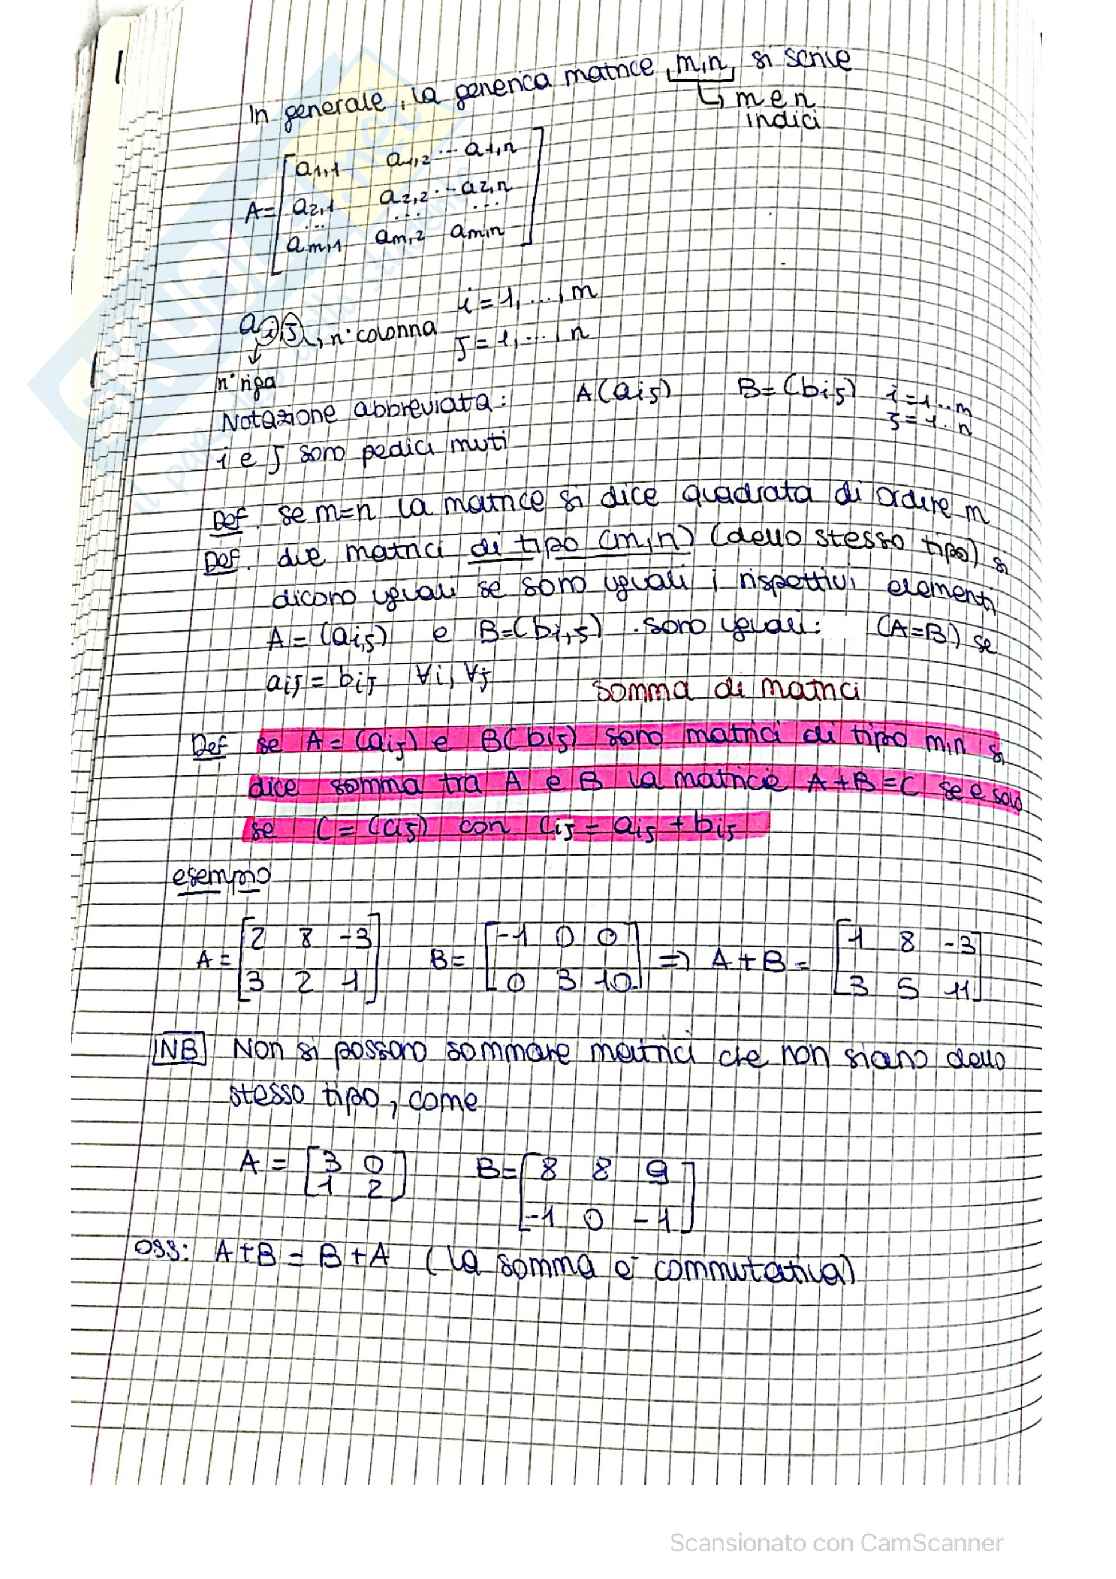 In generale, la generica matrice m,n, si scrive
↳ m e n
indici
a1,1 a1,2 ... a1,n
A= a2,1 a2,2 ... a2,n
... ... ...
am,1 am,2 am,n
i=1,...,m
aij, n° colonna j=1,...,n
n° riga
Notazione abbreviata: A(aij) B=(bij) i=1...m
j=1...n
i e j sono pedici muti
Def. se m=n la matrice si dice quadrata di ordine m
Def. due matrici di tipo (m,n) (dello stesso tipo) si
dicono uguali se sono uguali i rispettivi elementi
A=(ai,j) e B=(bi,j) sono uguali: (A=B) se
aij = bij ∀i, ∀j
somma di matrici
Def se A=(aij) e B(bij) sono matrici di tipo m,n si
dice somma tra A e B la matrice A+B=C se e solo
se C=(cij) con cij = aij + bij
esempio
A= [2 8 -3 B= [-1 0 0 => A+B= [1 8 -3
3 2 1] 0 3 10] 3 5 11]
NB Non si possono sommare matrici che non siano dello
stesso tipo, come
A = [3 0 B= [8 8 9
1 2] -1 0 -1]
oss: A+B = B+A (la somma è commutativa)
Scansionato con CamScanner